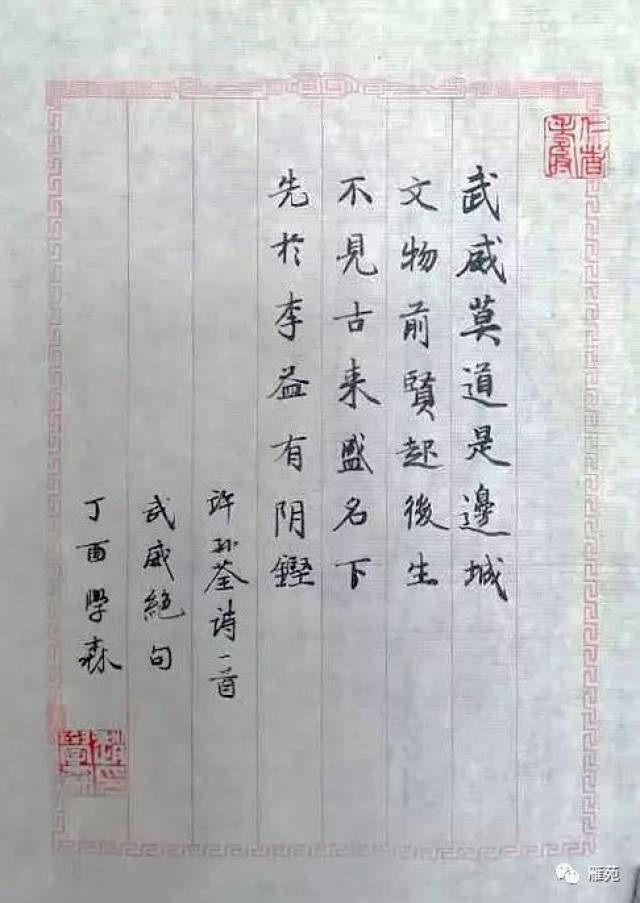 武威莫道是邊城
文物前賢起後生
不見古来盛名下
先於李益有阴鏗
許孙荃诗一首
武威絶句
丁酉學森
雁苑